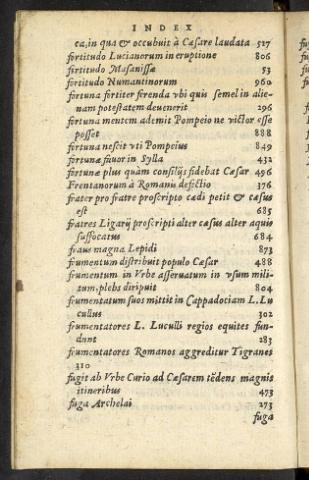 INDEX
ca, in qua & occubuit à Cæsare laudata 527
fortitudo Lucianorum in eruptione 806
fortitudo Masanissæ 53
fortitudo Numantinorum 960
fortuna fortiter ferenda vbi quis semel in alie-
nam potestatem deuenerit 296
fortuna mentem ademit Pompeio ne victor esse
posset 888
fortuna nescit vti Pompeius 849
fortunæ fauor in Sylla 432
fortunæ plus quàm consilijs fidebat Cæsar 496
Frentanorum à Romanis defectio 376
frater pro fratre proscripto cædi petit & cæsus
est 685
fratres Ligarij proscripti alter cæsus alter aquis
suffocatus 684
fraus magna Lepidi 873
frumentum distribuit populo Cæsar 488
frumentum in Vrbe asseruatum in vsum mili-
tum, plebs diripuit 804
frumentatum suos mittit in Cappadociam L. Lu
cullus 302
frumentatores L. Luculli regios equites fun-
dunt 283
frumentatores Romanos aggreditur Tigranes
310
fugit ab Vrbe Curio ad Cæsarem tēdens magnis
itineribus 473
fuga Archelai 273
fuga